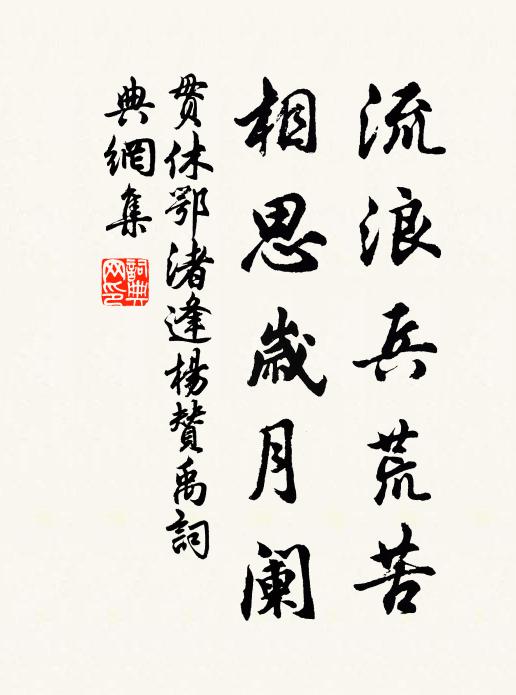 流浪兵荒苦
相思歲月阑
贯休鄂渚逢楊贊禹詞
典網集
詞典网印